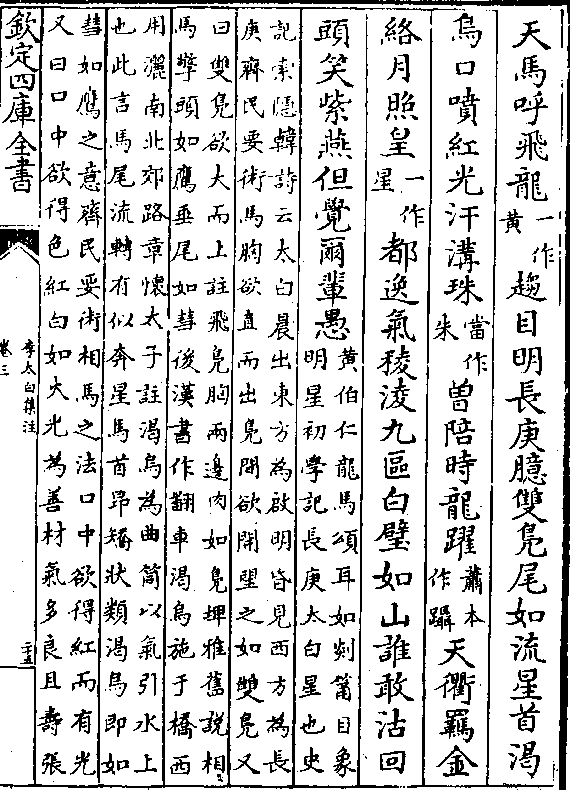 天馬呼飛龍一作黄趨目明長庚臆雙鳬尾如流星首渴
烏口噴紅光汗溝珠當作朱曽陪時龍躍蕭本作躡天衢羈金
絡月照皇一作星都逸氣稜淩九區白璧如山誰敢沽回
頭笑紫燕但覺爾輩愚黄伯仁龍馬頌耳如剡筩目象
明星初學記長庚太白星也史
記索隱韓詩云太白晨出東方為啟明昏見西方為長
庚齊民要術馬胸欲直而出鳬間欲開望之如雙鳬又
曰雙鳬欲大而上註飛鳬胸兩邊肉如鳬埤雅舊說相
馬擎頭如鷹垂尾如彗後漢書作翻車渇烏施于橋西
用灑南北郊路章懷太子註渇烏為曲筒以氣引水上
也此言馬尾流轉有似奔星馬首昂矯狀類渇烏即如
彗如鷹之意齊民要術相馬之法口中欲得紅而有光
又曰口中欲得色紅白如火光為善材氣多良且壽張
欽定四庫全書
李太白集注
卷三
二十五